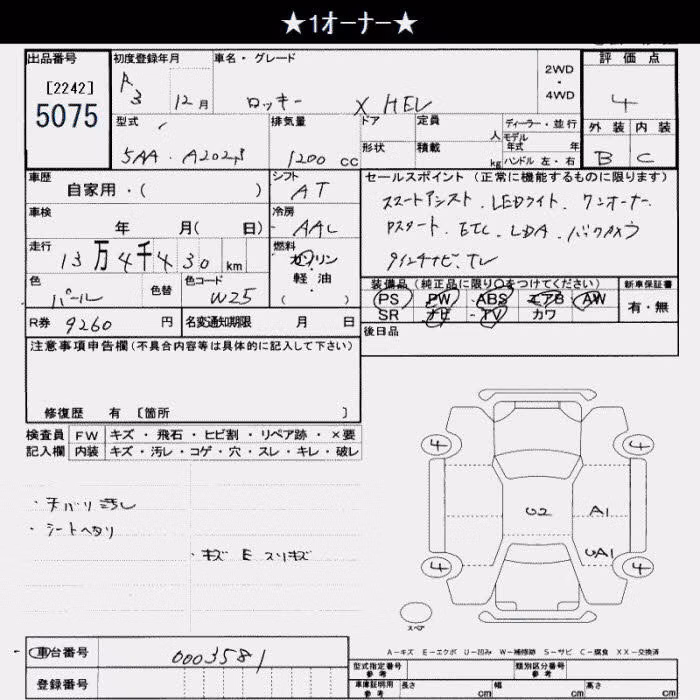 ★1オーナー★
出品番号 初度登録年月 車名・グレード 評価点
[2242]
5075
R3 12月 ロッキー X HEV
2WD
・
4WD
4
型式 排気量 ドア 定員 人 ディーラー・並行
モデル
年式 年
外装 内装
5AA・A202 1200 CC 形状 積載 kg ハンドル 左・右 B C
車歴 自家用・( ) シフト AT セールスポイント(正常に機能するものに限ります)
スマートアシスト.LEDライト.ワンオーナー.
車検 年 月( 日) 冷房 AAC
Pスタート.ETC.LDA.バックカメラ
走行 13万4千430km 燃料 ガソリン
軽・油
( )
9インチナビ.TV
色 パール 色替 色コード W25
装備品(純正品に限り○をつけてください) 新車保証書
PS PW ABS エアB AW 有・無
SR ナビ TV カワ
R券 9260 円 名変通知期限 月 日 後日品
注意事項申告欄(不具合内容等は具体的に記入して下さい)
修復歴 有 [箇所 ]
検査員 FW キズ・飛石・ヒビ割・リペア跡・×要
記入欄 内装 キズ・汚レ・コゲ・穴・スレ・キレ・破レ
・天バリ汚レ
・シートヘタリ
・キズ E スリキズ
4 4
U2 A1
UA1
4 4
スペア
A－キズ E－エクボ U－凹み W－補修跡 S－サビ C－腐食 XX－交換済
車台番号 0003581
登録番号
型式指定番号
参考
類別区分番号
参考
車庫証明用
参考
長さ cm 幅 cm 高さ cm